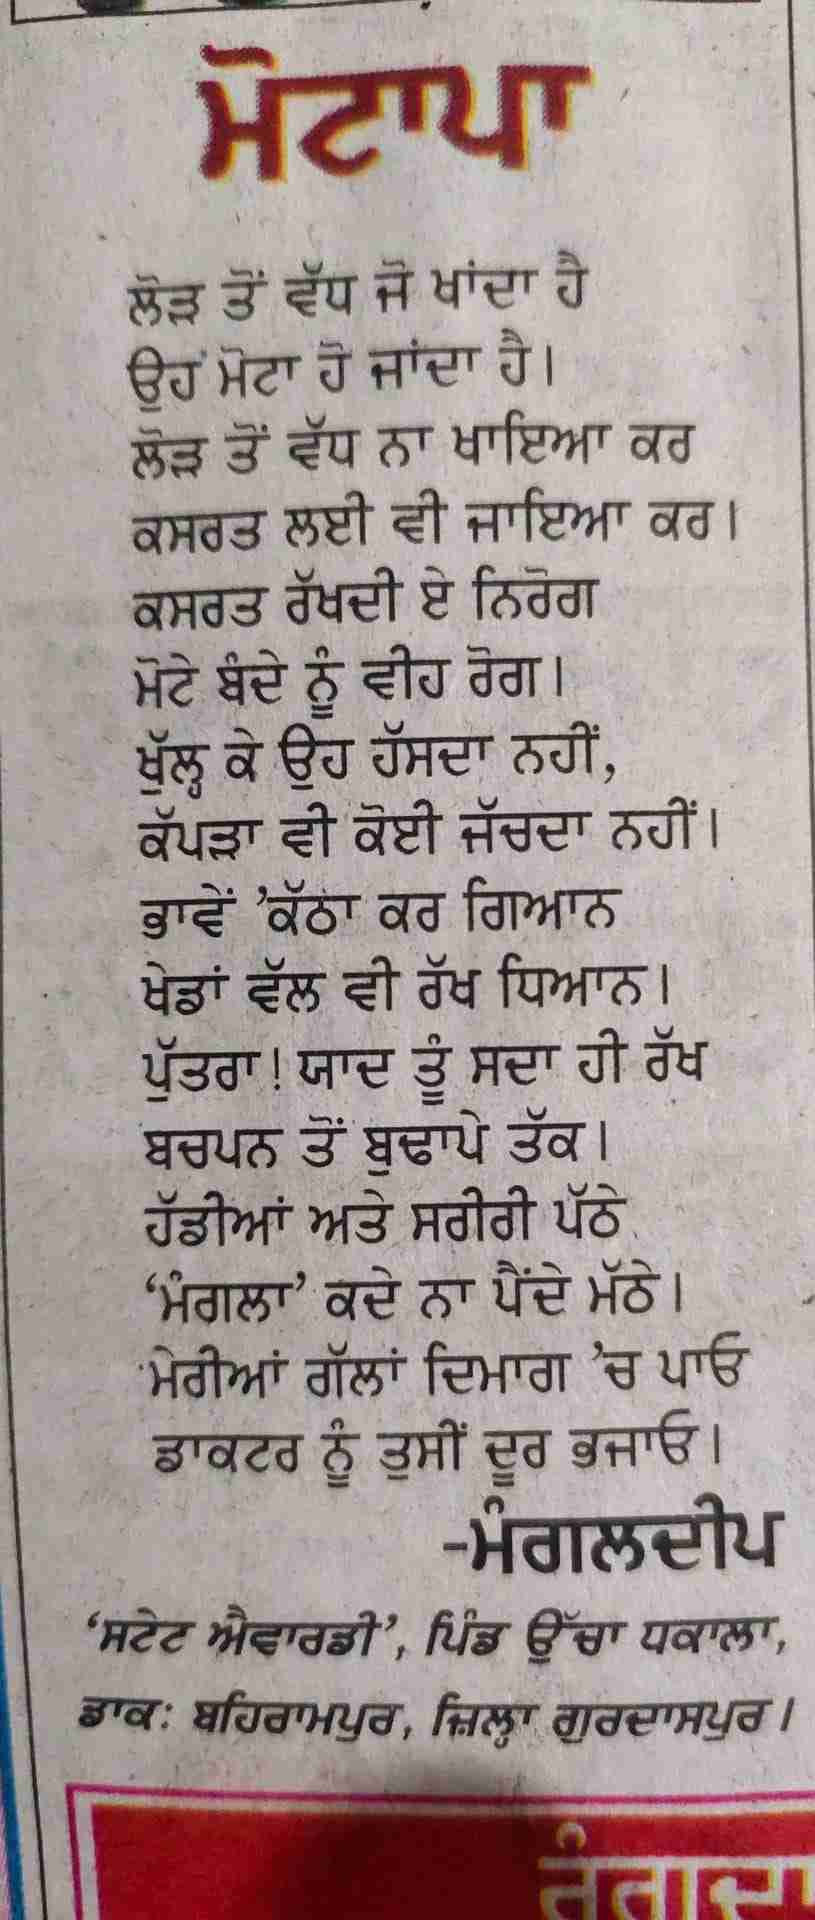 ਮੋਟਾਪਾ
ਲੋੜ ਤੋਂ ਵੱਧ ਜੋ ਖਾਂਦਾ ਹੈ
ਉਹ ਮੋਟਾ ਹੋ ਜਾਂਦਾ ਹੈ।
ਲੋੜ ਤੋਂ ਵੱਧ ਨਾ ਖਾਇਆ ਕਰ
ਕਸਰਤ ਲਈ ਵੀ ਜਾਇਆ ਕਰ।
ਕਸਰਤ ਰੱਖਦੀ ਏ ਨਿਰੋਗ
ਮੋਟੇ ਬੰਦੇ ਨੂੰ ਵੀਹ ਰੋਗ।
ਖੁੱਲ੍ਹ ਕੇ ਉਹ ਹੱਸਦਾ ਨਹੀਂ,
ਕੱਪੜਾ ਵੀ ਕੋਈ ਜੱਚਦਾ ਨਹੀਂ।
ਭਾਵੇਂ ’ਕੱਠਾ ਕਰ ਗਿਆਨ
ਖੇਡਾਂ ਵੱਲ ਵੀ ਰੱਖ ਧਿਆਨ।
ਪੁੱਤਰਾ! ਯਾਦ ਤੂੰ ਸਦਾ ਹੀ ਰੱਖ
ਬਚਪਨ ਤੋਂ ਬੁਢਾਪੇ ਤੱਕ।
ਹੱਡੀਆਂ ਅਤੇ ਸਰੀਰੀ ਪੱਠੇ
‘ਮੰਗਲਾ’ ਕਦੇ ਨਾ ਪੈਂਦੇ ਮੱਠੇ।
ਮੇਰੀਆਂ ਗੱਲਾਂ ਦਿਮਾਗ ’ਚ ਪਾਓ
ਡਾਕਟਰ ਨੂੰ ਤੁਸੀਂ ਦੂਰ ਭਜਾਓ।
-ਮੰਗਲਦੀਪ
‘ਸਟੇਟ ਐਵਾਰਡੀ’, ਪਿੰਡ ਉੱਚਾ ਧਕਾਲਾ,
ਡਾਕ: ਬਹਿਰਾਮਪੁਰ, ਜ਼ਿਲ੍ਹਾ ਗੁਰਦਾਸਪੁਰ।